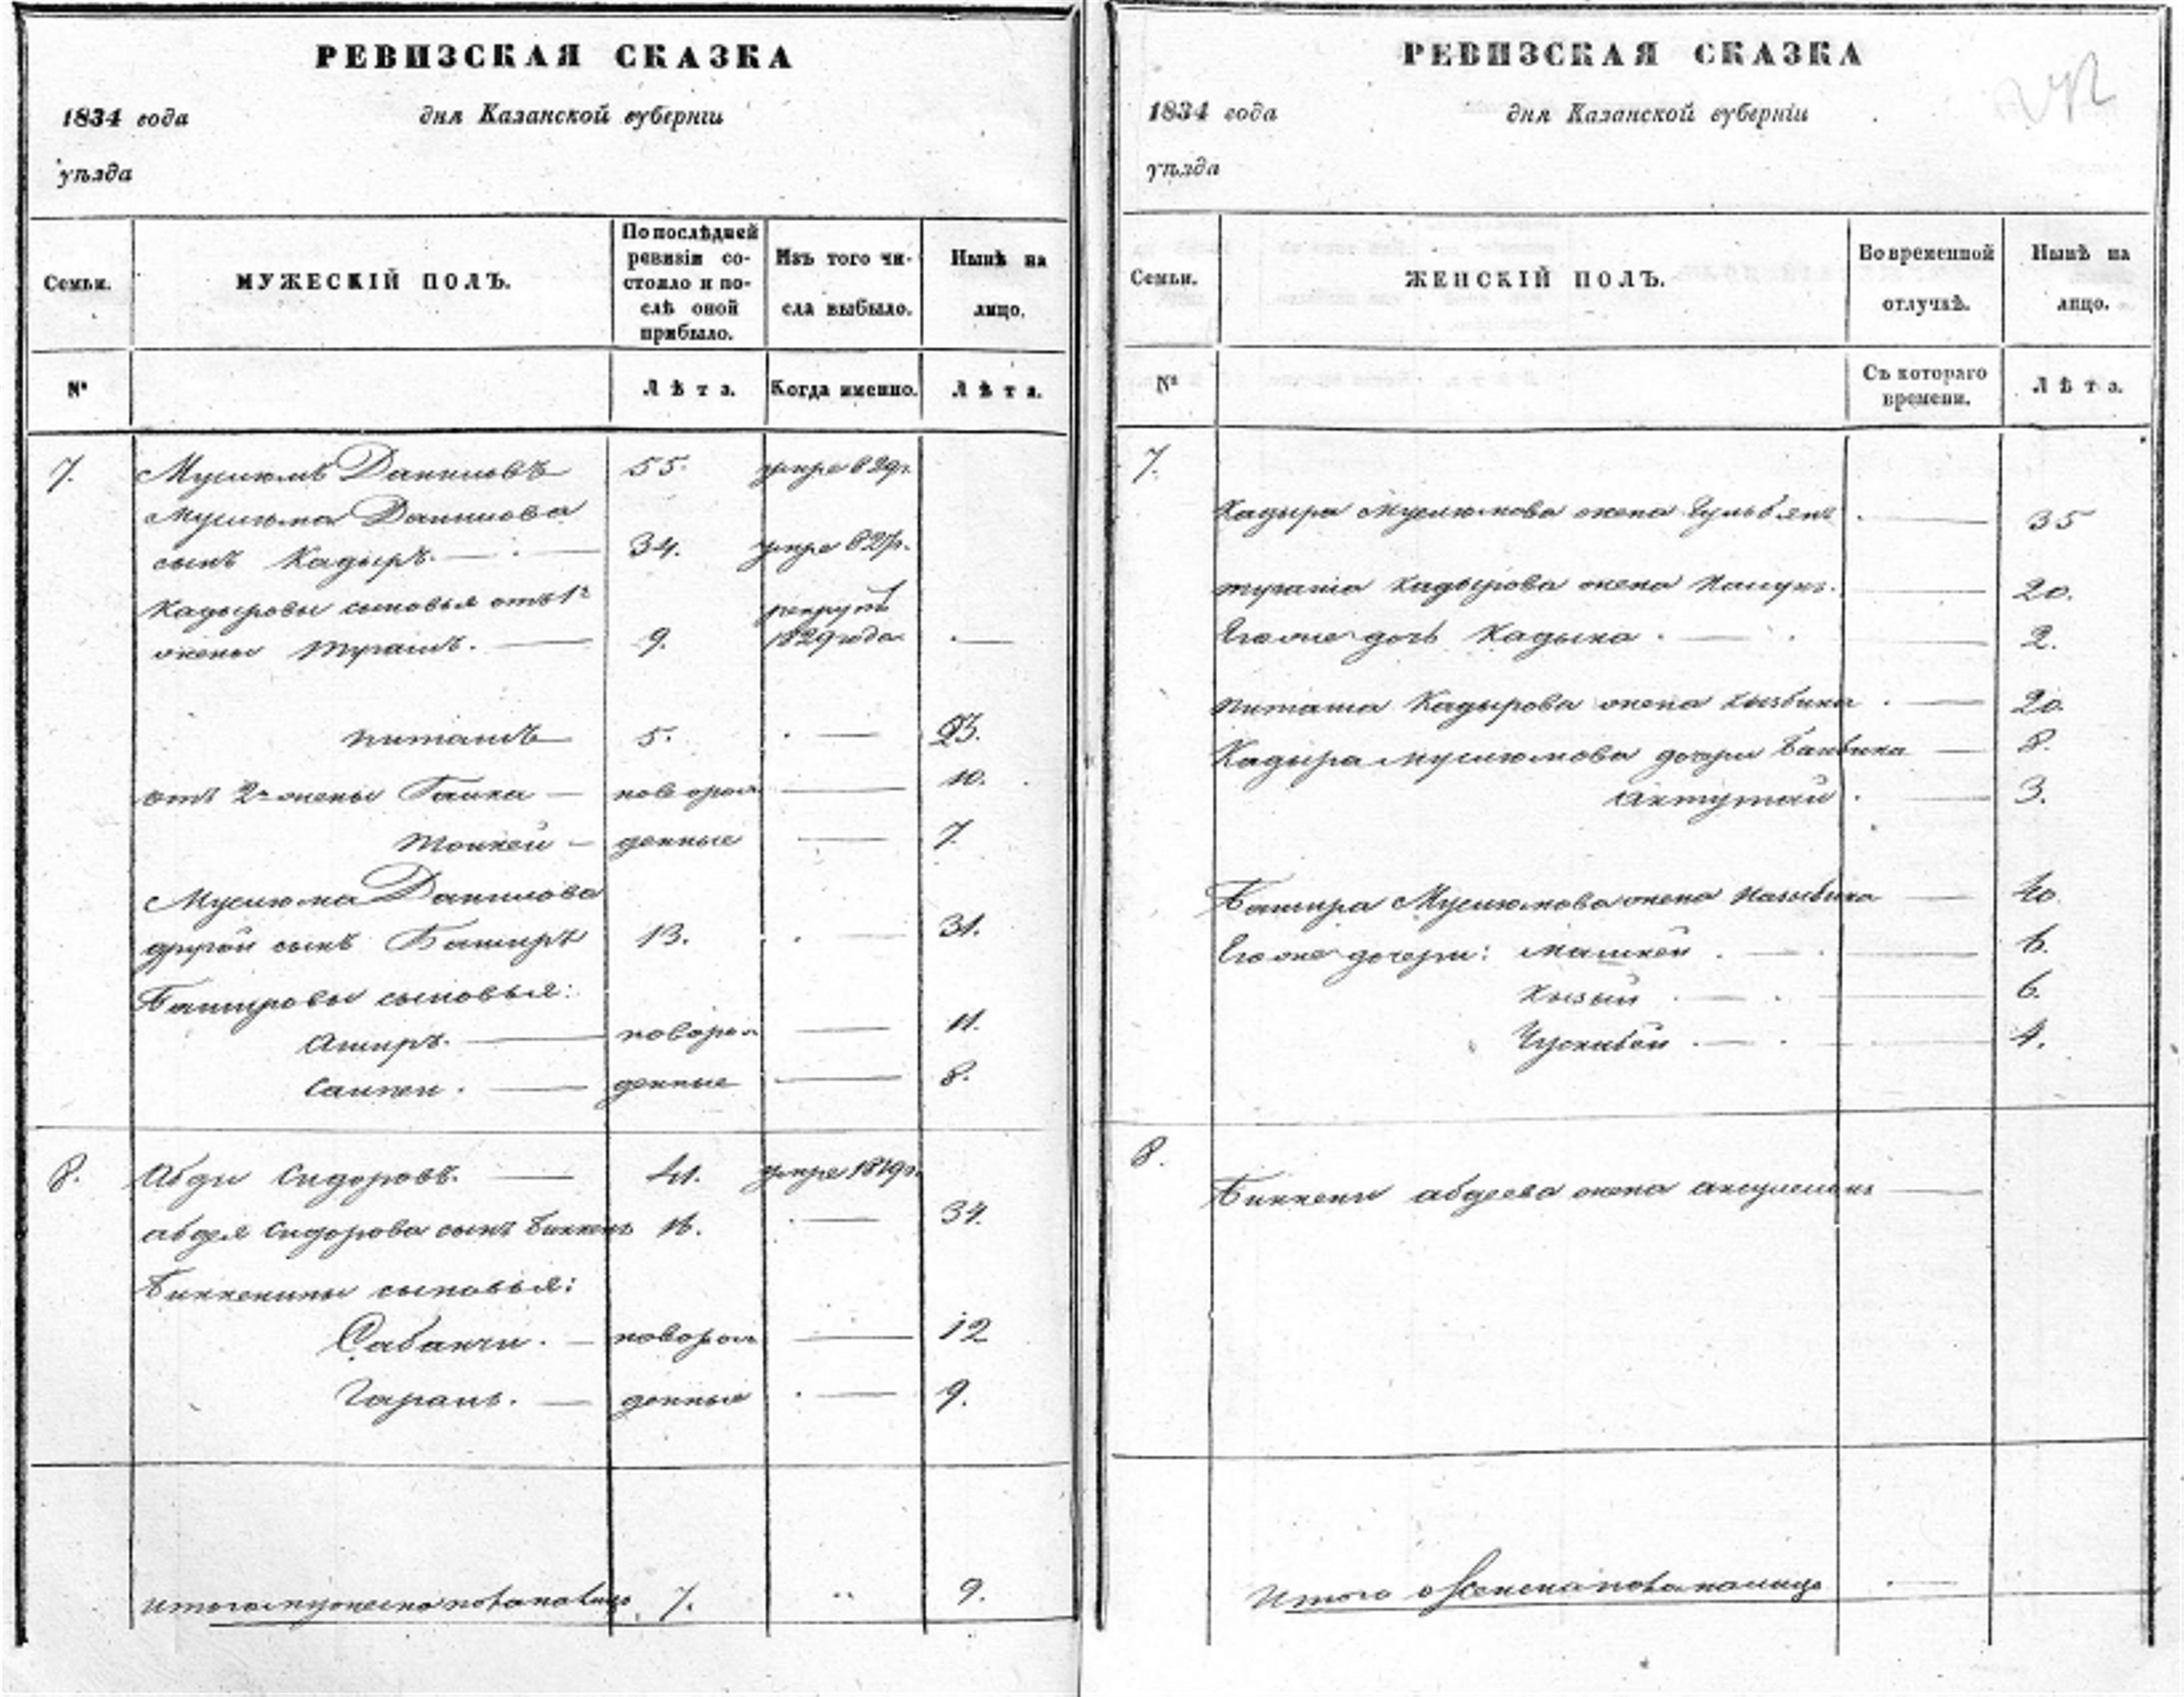 РЕВИЗСКАЯ СКАЗКА
1834 года дня Казанской губерніи
уѣзда
Семьи. МУЖЕСКІЙ ПОЛЪ. По послѣдней ревизіи состояло и послѣ оной прибыло. Изъ того числа выбыло. Нынѣ на лицо.
№ Лѣта. Когда именно. Лѣта.
7. Мусюкмъ Даниловъ 55. умре 829г.
Мусюкма Данилова
сынъ Кадыръ. 34. умре 827г.
Кадыровы сыновья отъ 1й рекрутъ
жены Тугашъ. 9. 1829 года.
Питашъ 5. 23.
отъ 2й жены Баика новорож 10.
Тойкей денные 7.
Мусюкма Данилова
другой сынъ Баширъ 13. 31.
Башировы сыновья:
Аширъ. новорож 11.
Саипеи. денные 8.
8. Абди Сидоровъ. 41. умре 1819г.
Абдея Сидорова сынъ Биккень 16. 34.
Биккенины сыновья:
Сабанчи. новорож 12
Чарань. денные 9.
Итого мужеска пола на лицо 7. 9.
РЕВИЗСКАЯ СКАЗКА
1834 года дня Казанской губерніи
уѣзда
Семьи. ЖЕНСКІЙ ПОЛЪ. Во временной отлучкѣ. Нынѣ на лицо.
№ Съ котораго времени. Лѣта.
7.
Кадыра Мусюкмова жена Гульбянь 35
Тугаша Кадырова жена 20.
Его же дочь Кадыка. 2.
Питаша Кадырова жена Кызбика 20.
Кадыра Мусюкмова дочери Баибика 8.
Актутай 3.
Башира Мусюкмова жена Назыбика 40.
Его же дочери: Машкей 6.
Кызыи 6.
4.
8.
Биккени Абдеева жена
Итого женска пола на лицо